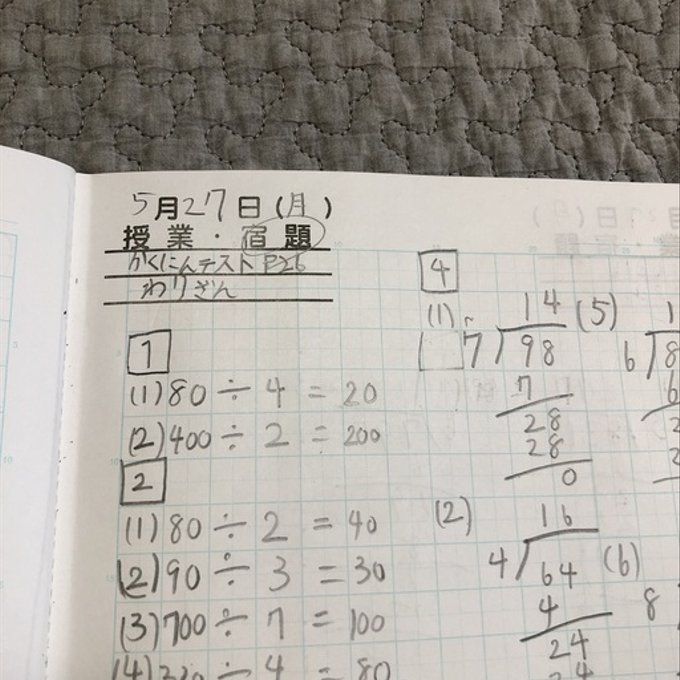 5月27日(月)
授業・宿題
かくにんテスト P26
わりざん
1
(1)80÷4=20
(2)400÷2=200
2
(1)80÷2=40
(2)90÷3=30
(3)700÷7=100
(4)320÷4=80
4
(1)
14
7)98
7
28
28
0
(2)
16
4)64
4
24
24
(5)
1
6)8
6
2
2
(6)
8